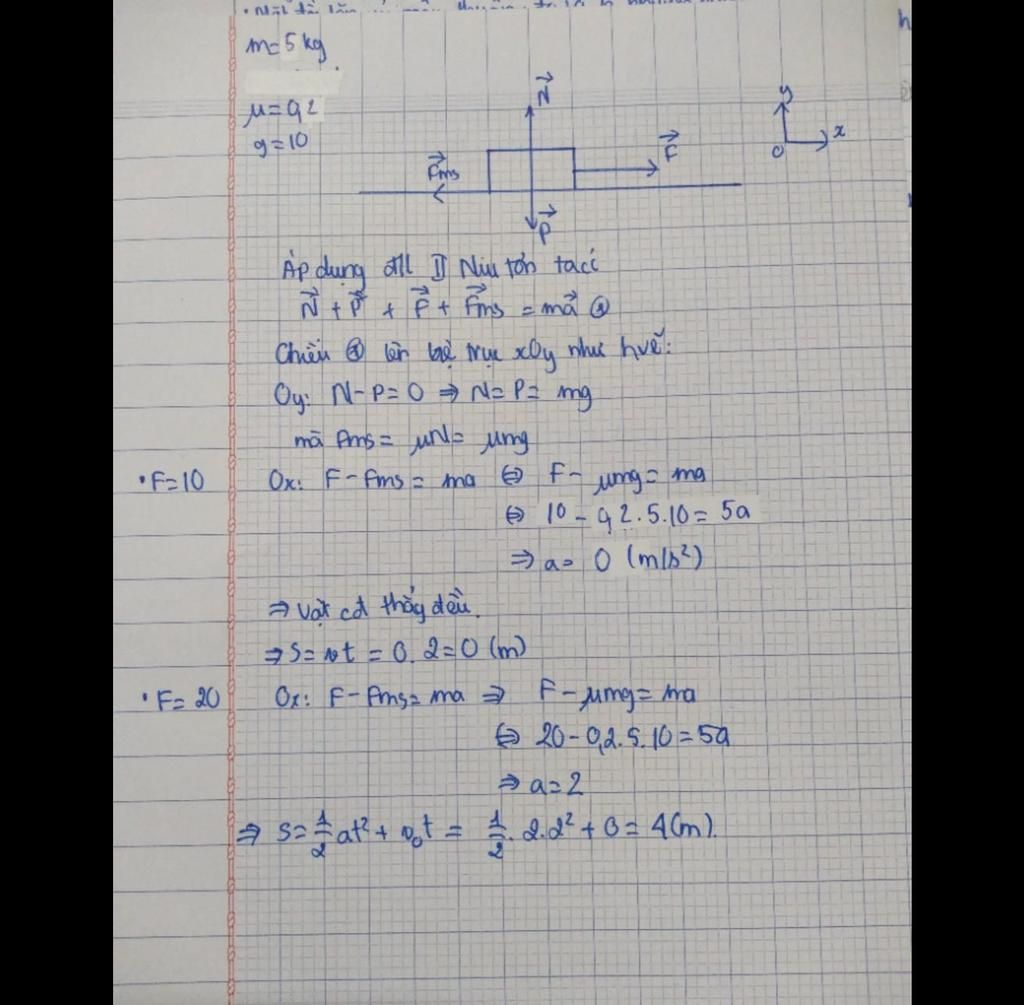 m=5 kg
μ=0,2
g=10
N
y
x
O
F
Fms
P
Áp dụng đll II Niu tơn ta có
N + P + F + Fms = ma
Chiếu lên hệ trục xOy như h vẽ:
Oy: N-P=0 ⇒ N=P= mg
mà Fms = μN= μmg
• F=10 Ox: F-Fms = ma ⇔ F- μmg= ma
⇔ 10 - 0,2.5.10= 5a
⇒ a= 0 (m/s²)
⇒ vật cđ thẳng đều.
⇒ S= vt = 0.2=0 (m)
• F= 20 Ox: F-Fms= ma ⇒ F-μmg= ma
⇔ 20-0,2.5.10=5a
⇒ a=2
⇒ S= 1/2 at² + v₀t = 1/2 . 2.2² + 0 = 4(m).